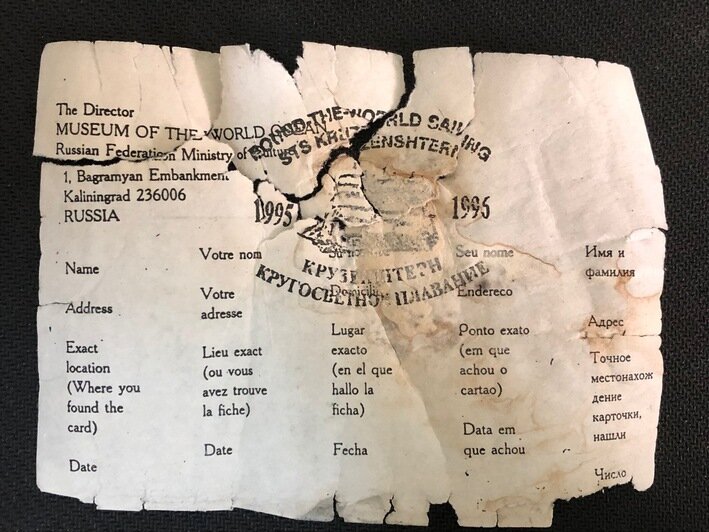 The Director
MUSEUM OF THE WORLD OCEAN
Russian Federation Ministry of Culture
1, Bagramyan Embankment
Kaliningrad 236006
RUSSIA
ROUND-THE-WORLD SAILING
STS KRUZENSHTERN
1995 1996
КРУЗЕНШТЕРН
КРУГОСВЕТНОЕ ПЛАВАНИЕ
Name
Address
Exact
location
(Where you
found the
card)
Date
Votre nom
Votre
adresse
Lieu exact
(ou vous
avez trouve
la fiche)
Date
Domicilio
Lugar
exacto
(en el que
hallo la
ficha)
Fecha
Seu nome
Endereco
Ponto exato
(em que
achou o
cartao)
Data em
que achou
Имя и
фамилия
Адрес
Точное
местонахож
дение
карточки,
нашли
Число